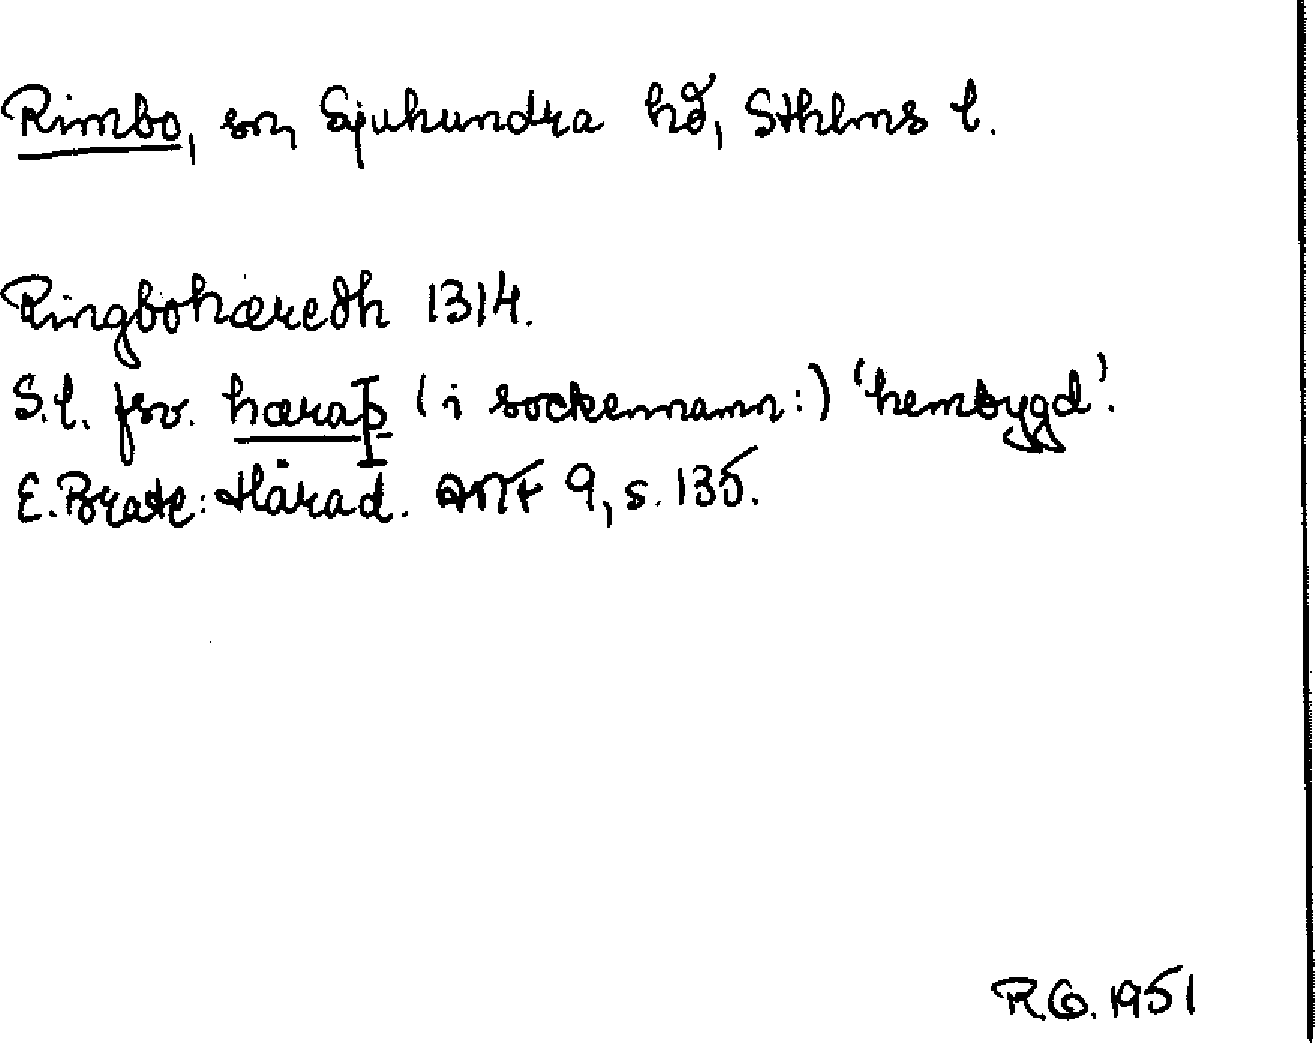 Rimbo, sn, Sjuhundra hd, Sthlms l.
Ringbohæredh 1314.
S.l. fsv. hæraþ (i sockennamn:) 'hembygd'.
E. Brate: Härad. ANF 9, s. 135.
R.G. 1951